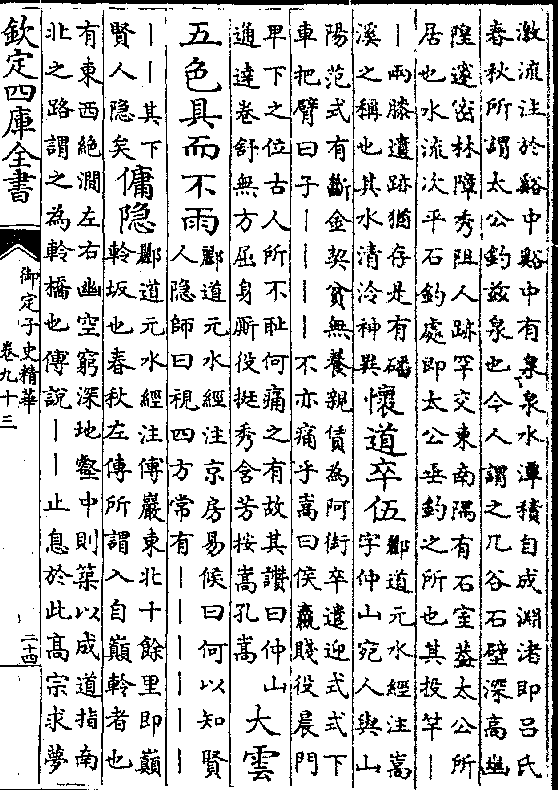 激流注於谿中谿中有泉泉水潭積自成淵渚即吕氏
春秋所謂太公釣兹泉也今人謂之凡谷石壁深髙幽
隍邃宻林障秀阻人跡罕交東南隅有石室葢太公所
居也水流次平石釣處即太公垂釣之所也其投竿丨
丨兩膝遺跡猶存是有磻
溪之稱也其水清泠神異
懷道卒伍
酈道元水經注嵩
字仲山宛人與山
陽范式有斷金契貧無養親賃為阿街卒遣迎式式下
車把臂曰子丨丨丨丨不亦痛乎嵩曰侯嬴賤役晨門
卑下之位古人所不耻何痛之有故其讚曰仲山
通達卷舒無方屈身厮役挺秀含芳按嵩孔嵩
大雲
五色具而不雨
酈道元水經注京房易候曰何以知賢
人隐師曰視四方常有丨丨丨丨丨丨
丨丨其下
賢人隐矣
傭隐
酈道元水經注傅巖東北十餘里即巔
軨坂也春秋左傳所謂入自巔軨者也
有東西絶澗左右幽空窮深地壑中則築以成道指南
北之路謂之為軨橋也傅說丨丨止息於此髙宗求夢
欽定四庫全書
御定子史精華
卷九十三
二十四